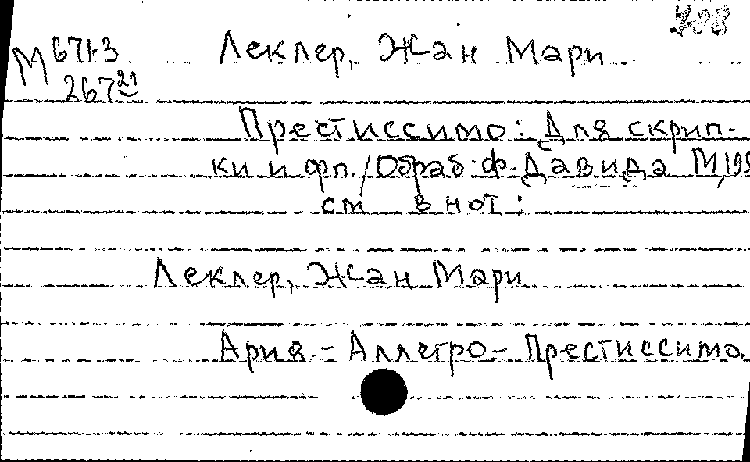 М 671-3
267 21
Леклер, Жан Мари
Престиссимо: Для скрип-
ки и фп. / Обраб. Ф. Давида М, 195
см в нот:
Леклер, Жан Мари
Ария - Аллегро - Престиссимо